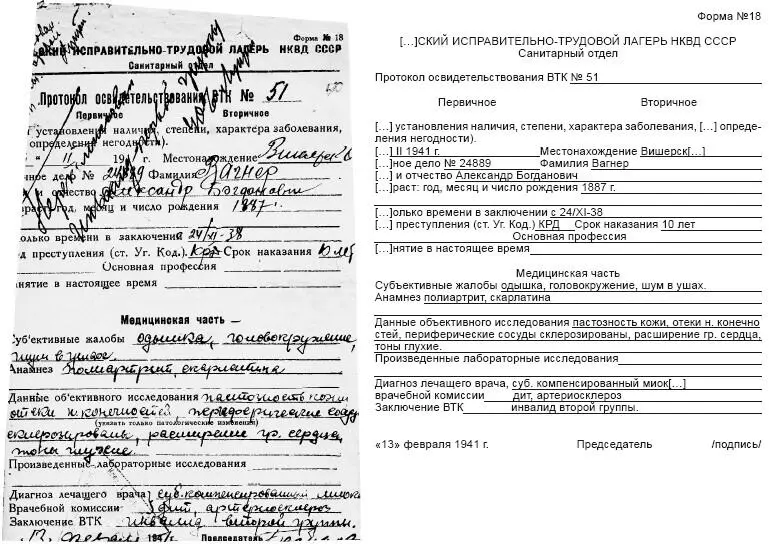 Форма № 18
СКИЙ ИСПРАВИТЕЛЬНО-ТРУДОВОЙ ЛАГЕРЬ НКВД СССР
Санитарный отдел
Протокол освидетельствования ВТК № 51
Первичное Вторичное
установления наличия, степени, характера заболевания,
определения негодности).
" II 194 г. Местонахождение Вишерск
ное дело № 24889 Фамилия Вагнер
и отчество Александр Богданович
раст: год, месяц и число рождения 1887 г.
олько времени в заключении с 24/XI-38
д преступления (ст. Уг. Код.) КРД Срок наказания лет
Основная профессия
анятие в настоящее время
Медицинская часть —
Суб'ективные жалобы одышка, головокружение,
шум в ушах.
Анамнез полиартрит, скарлатина
Данные об'ективного исследования пастозность кожи
отеки н. конечностей, периферические сосуды
(указать только патологические изменения)
склерозированы, расширение гр. сердца,
тоны глухие.
Произведенные лабораторные исследования
Диагноз лечащего врача суб. компенсированный миок
Врачебной комиссии дит, артериосклероз
Заключение ВТК инвалид второй группы.
13 февраля 194 г. Председатель
Форма №18
[…]СКИЙ ИСПРАВИТЕЛЬНО-ТРУДОВОЙ ЛАГЕРЬ НКВД СССР
Санитарный отдел
Протокол освидетельствования ВТК № 51
Первичное Вторичное
[…] установления наличия, степени, характера заболевания, […] опреде-
ления негодности).
[…] II 1941 г. Местонахождение Вишерск[…]
[…]ное дело № 24889 Фамилия Вагнер
[…] и отчество Александр Богданович
[…]раст: год, месяц и число рождения 1887 г.
[…]олько времени в заключении с 24/XI-38
[…] преступления (ст. Уг. Код.) КРД Срок наказания 10 лет
Основная профессия
[…]нятие в настоящее время
Медицинская часть
Субъективные жалобы одышка, головокружение, шум в ушах.
Анамнез полиартрит, скарлатина
Данные объективного исследования пастозность кожи, отеки н. конечно
стей, периферические сосуды склерозированы, расширение гр. сердца,
тоны глухие.
Произведенные лабораторные исследования
Диагноз лечащего врача, суб. компенсированный миок[…]
врачебной комиссии дит, артериосклероз
Заключение ВТК инвалид второй группы.
«13» февраля 1941 г. Председатель /подпись/